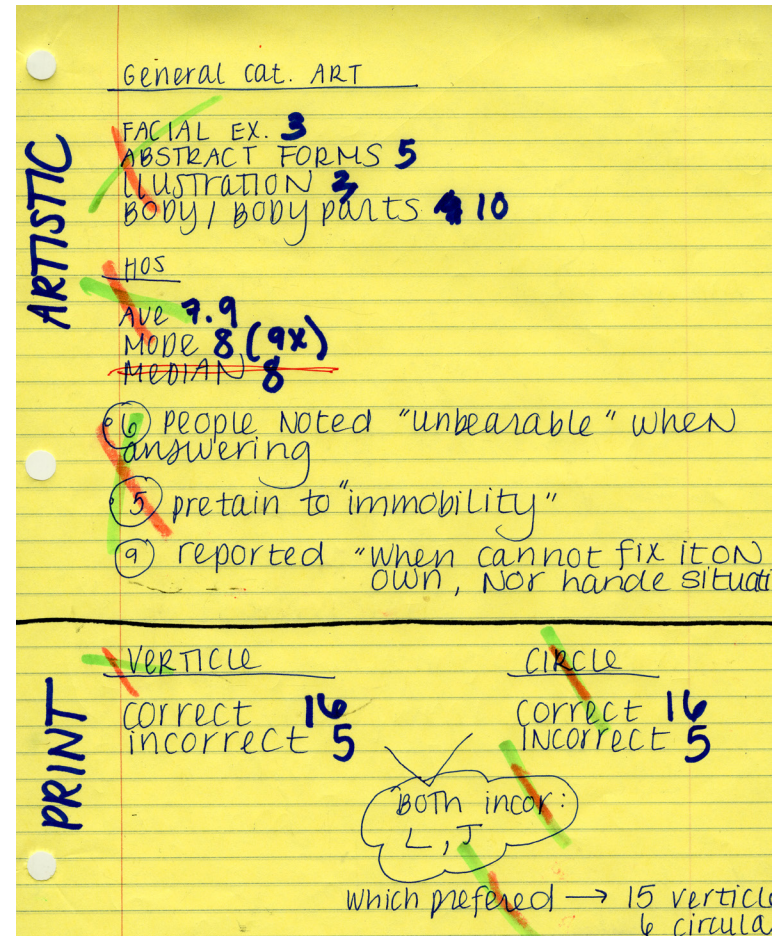 General Cat. ART
ARTISTIC
FACIAL EX. 3
ABSTRACT FORMS 5
ILLUSTRATION 3
BODY / BODY parts 10
HOS
AVE 7.9
MODE 8 (9x)
MEDIAN 8
6 people Noted "unbearable" when
answering
5 pretain to "immobility"
9 reported "when cannot fix it ON
own, Nor handle situati
PRINT
VERTICLE
correct 16
incorrect 5
CIRCLE
correct 16
INCORRECT 5
BOTH incor:
L, J
which prefered → 15 verticle
6 circula